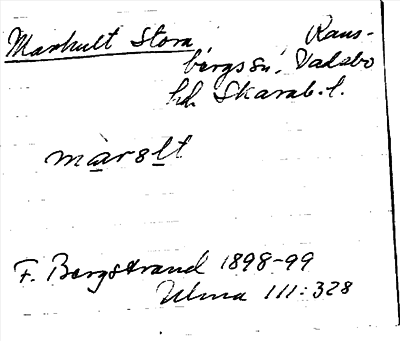 Markult Stora Rans-
bergs sn, Vadsbo
hd. Skarab. l.
marslt
F. Bergstrand 1898-99
Ulma 111:328